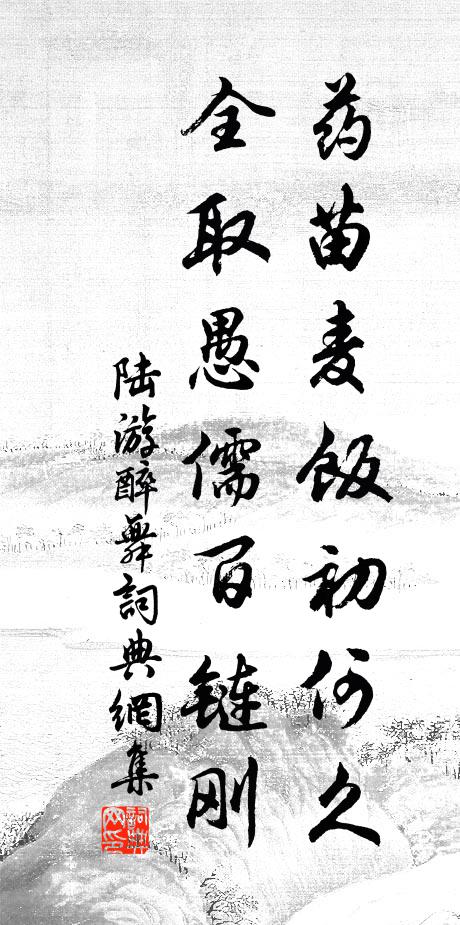 药苗麦饭初何欠
全取愚儒百链刚
陆游醉舞词典網集